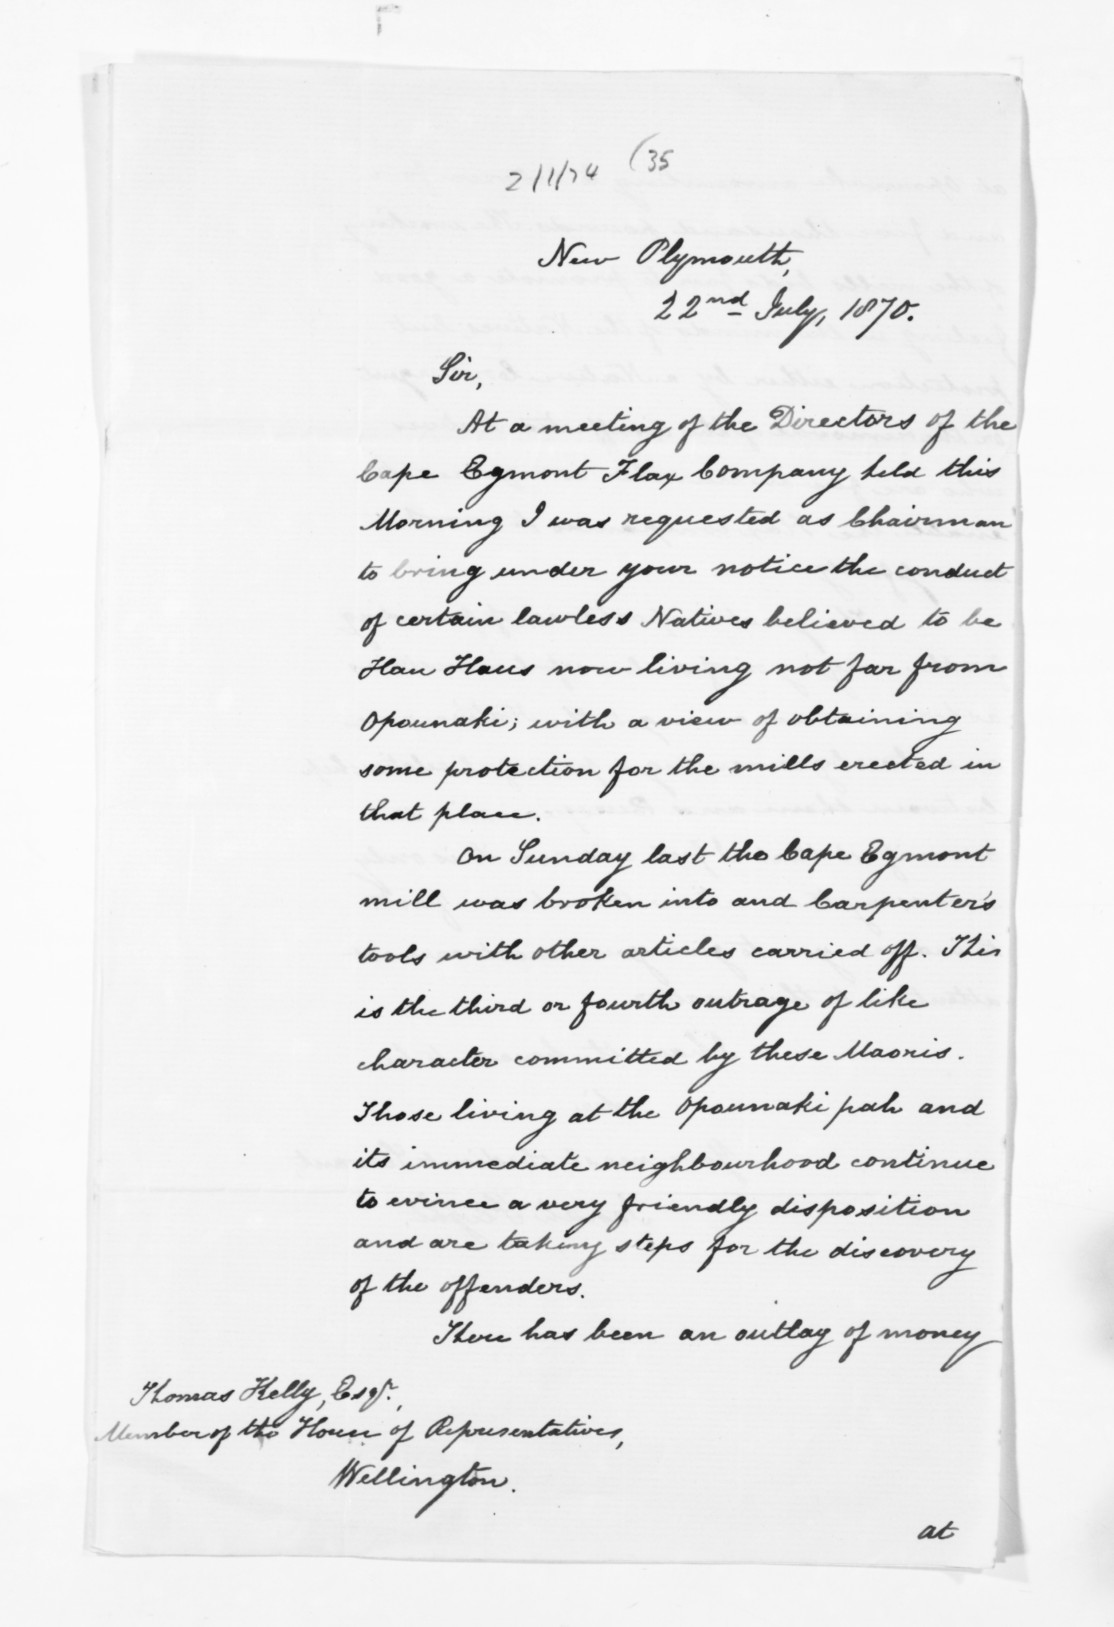 2/1/74 (35
New Plymouth,
22nd July, 1870.
Sir,
At a meeting of the Directors of the
Cape Egmont Flax Company held this
Morning I was requested as Chairman
to bring under your notice the conduct
of certain lawless Natives believed to be
Hau Haus now living not far from
Opounaki; with a view of obtaining
some protection for the mills erected in
that place.
On Sunday last the Cape Egmont
mill was broken into and Carpenter's
tools with other articles carried off. This
is the third or fourth outrage of like
character committed by these Maoris.
Those living at the Opounaki pah and
its immediate neighbourhood continue
to evince a very friendly disposition
and are taking steps for the discovery
of the offenders.
There has been an outlay of money
Thomas Kelly, Esqr.,
Member of the House of Representatives,
Wellington.
at